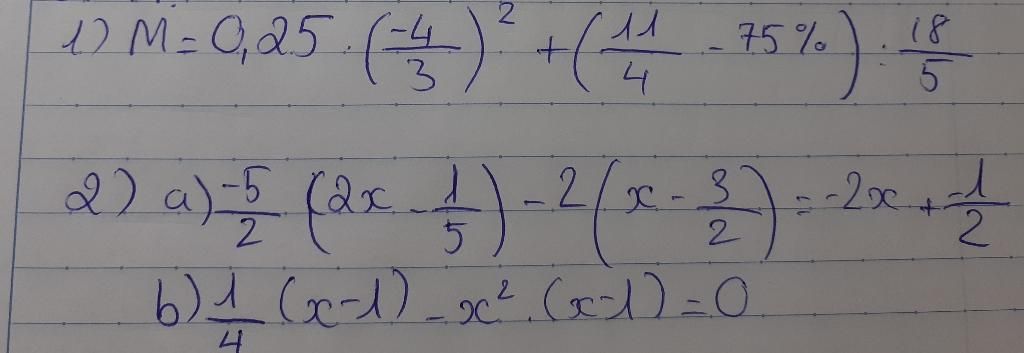 1) M = 0,25 · (-4/3)² + (11/4 - 75%) : 18/5
2) a) -5/2 (2x - 1/5) - 2 (x - 3/2) = -2x + -1/2
b) 1/4 (x-1) - x² . (x-1) = 0